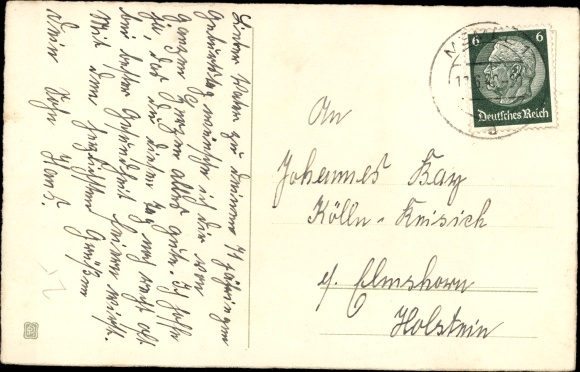 Lieber Vater zu deinem 71 jährigen
Geburtstag wünsche ich dir von
ganzen Herzen alles gute. Ich hoffe
das du diesen Tag noch recht oft
bei bester Gesundheit feiern wirst.
Mit den herzlichsten Grüßen
Dein Sohn Hans.
An
Johannes Kay
Kölln-Reisiek
b/ Elmshorn
Holstein
6 6
Deutsches Reich